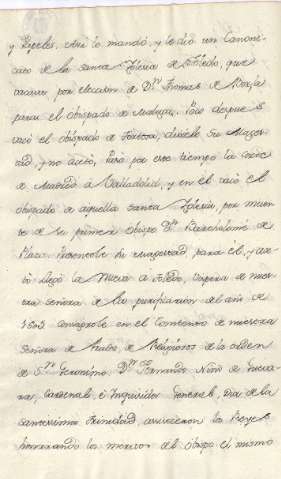 y Igleſ. Asi lo mandó, y le dió un Canoni-
cato de la santa Iglesia de Toledo, que
vacava por eleccion de Dn. Thomas de Borja
para el obispado de Malaga. Poco despues
vacó el obispado de diosele Su Mages-
tad, y no aceto, Pasó por este tiempo la Corte
de Madrid a Valladolid, y en el vacó el
obispado de aquella santa Iglesia, por muer-
te de su primer obispo Dn. Bartholome de
Plaza. su magestad para el, y
llegó la nueva a Toledo, vispera de nues-
tra señora de la purificacion del año de
1603 consagrole en el Convento de nuestra
Señora de Prado, de Religiosos de la orden
de Sn. Geronimo, Dn. Fernando Niño de Gueva-
ra, Cardenal, e Inquisidor General, Dia de la
santissima Trinidad, asistieron los Reyes
honrrando los meritos del obispo el mismo